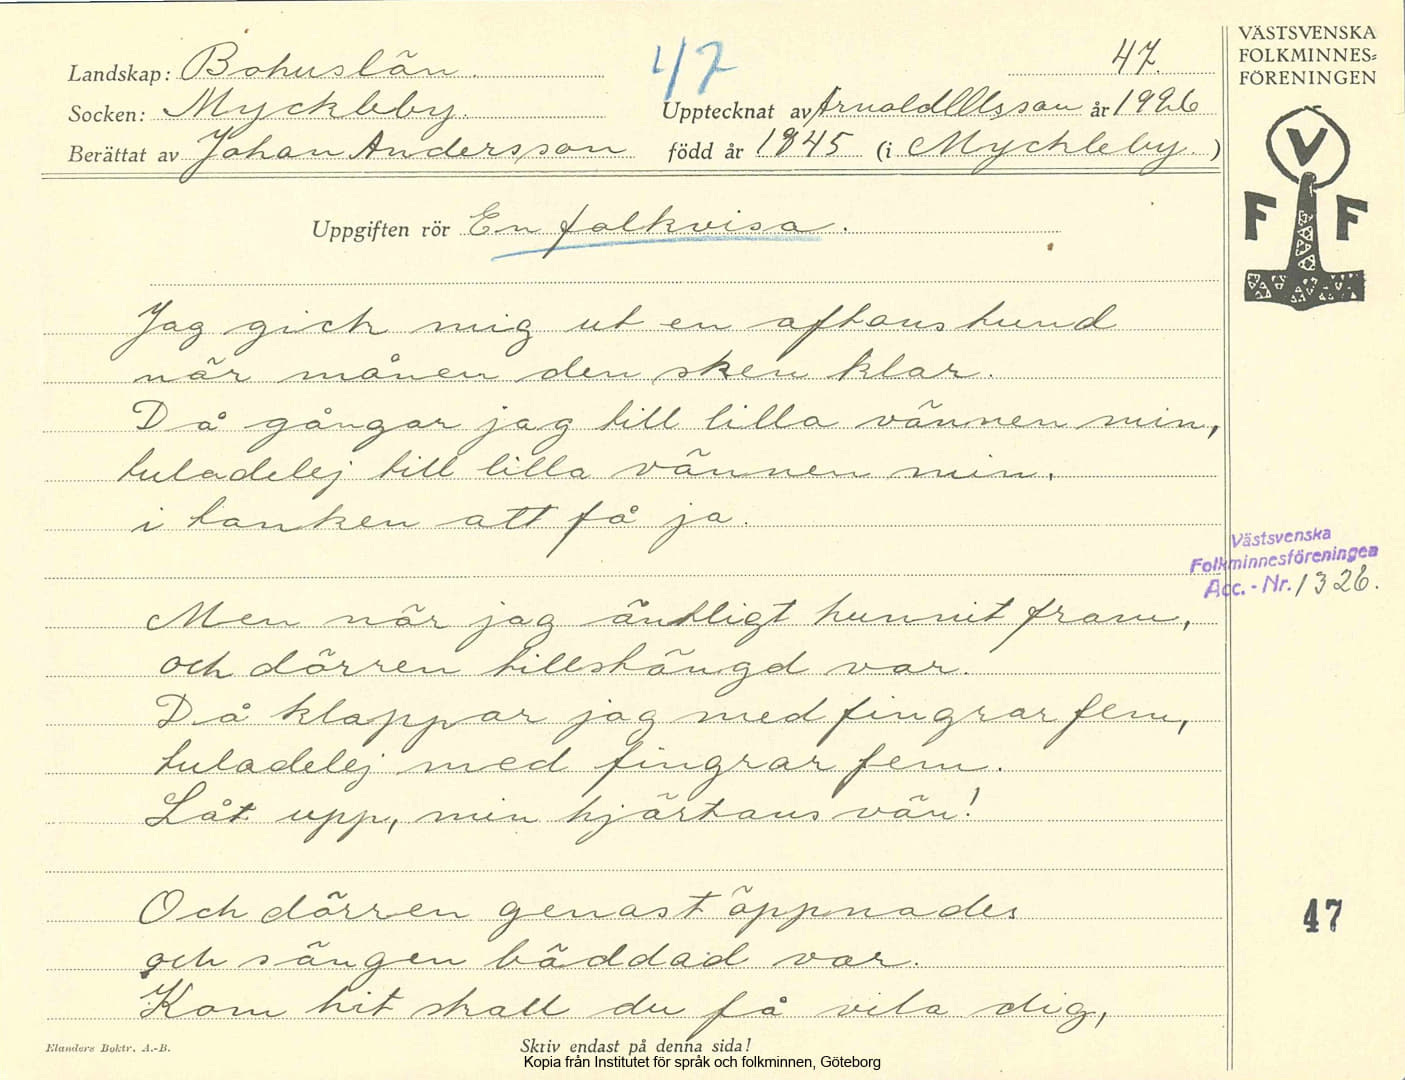 Landskap: Bohuslän.
47
47.
Socken: Myckleby.
Upptecknat av Arnold Olsson år 1926
Berättat av Johan Andersson
född år 1845 (i Myckleby.)
VÄSTSVENSKA
FOLKMINNES=
FÖRENINGEN
V
F F
Uppgiften rör En folkvisa.
Jag gick mig ut en aftonstund
när månen den sken klar.
Då gångar jag till lilla vännen min,
tuladelej till lilla vännen min,
i tanken att få ja.
Västsvenska
Folkminnesföreningen
Acc.-Nr. 1326.
Men när jag äntligt hunnit fram,
och dörren tillstängd var.
Då klappar jag med fingrar fem,
tuladelej med fingrar fem.
Låt upp, min hjärtans vän!
Och dörren genast öppnades
och sängen bäddad var.
Kom hit skall du få vila dig,
47
Elanders Boktr. A.-B.
Skriv endast på denna sida!
Kopia från Institutet för språk och folkminnen, Göteborg